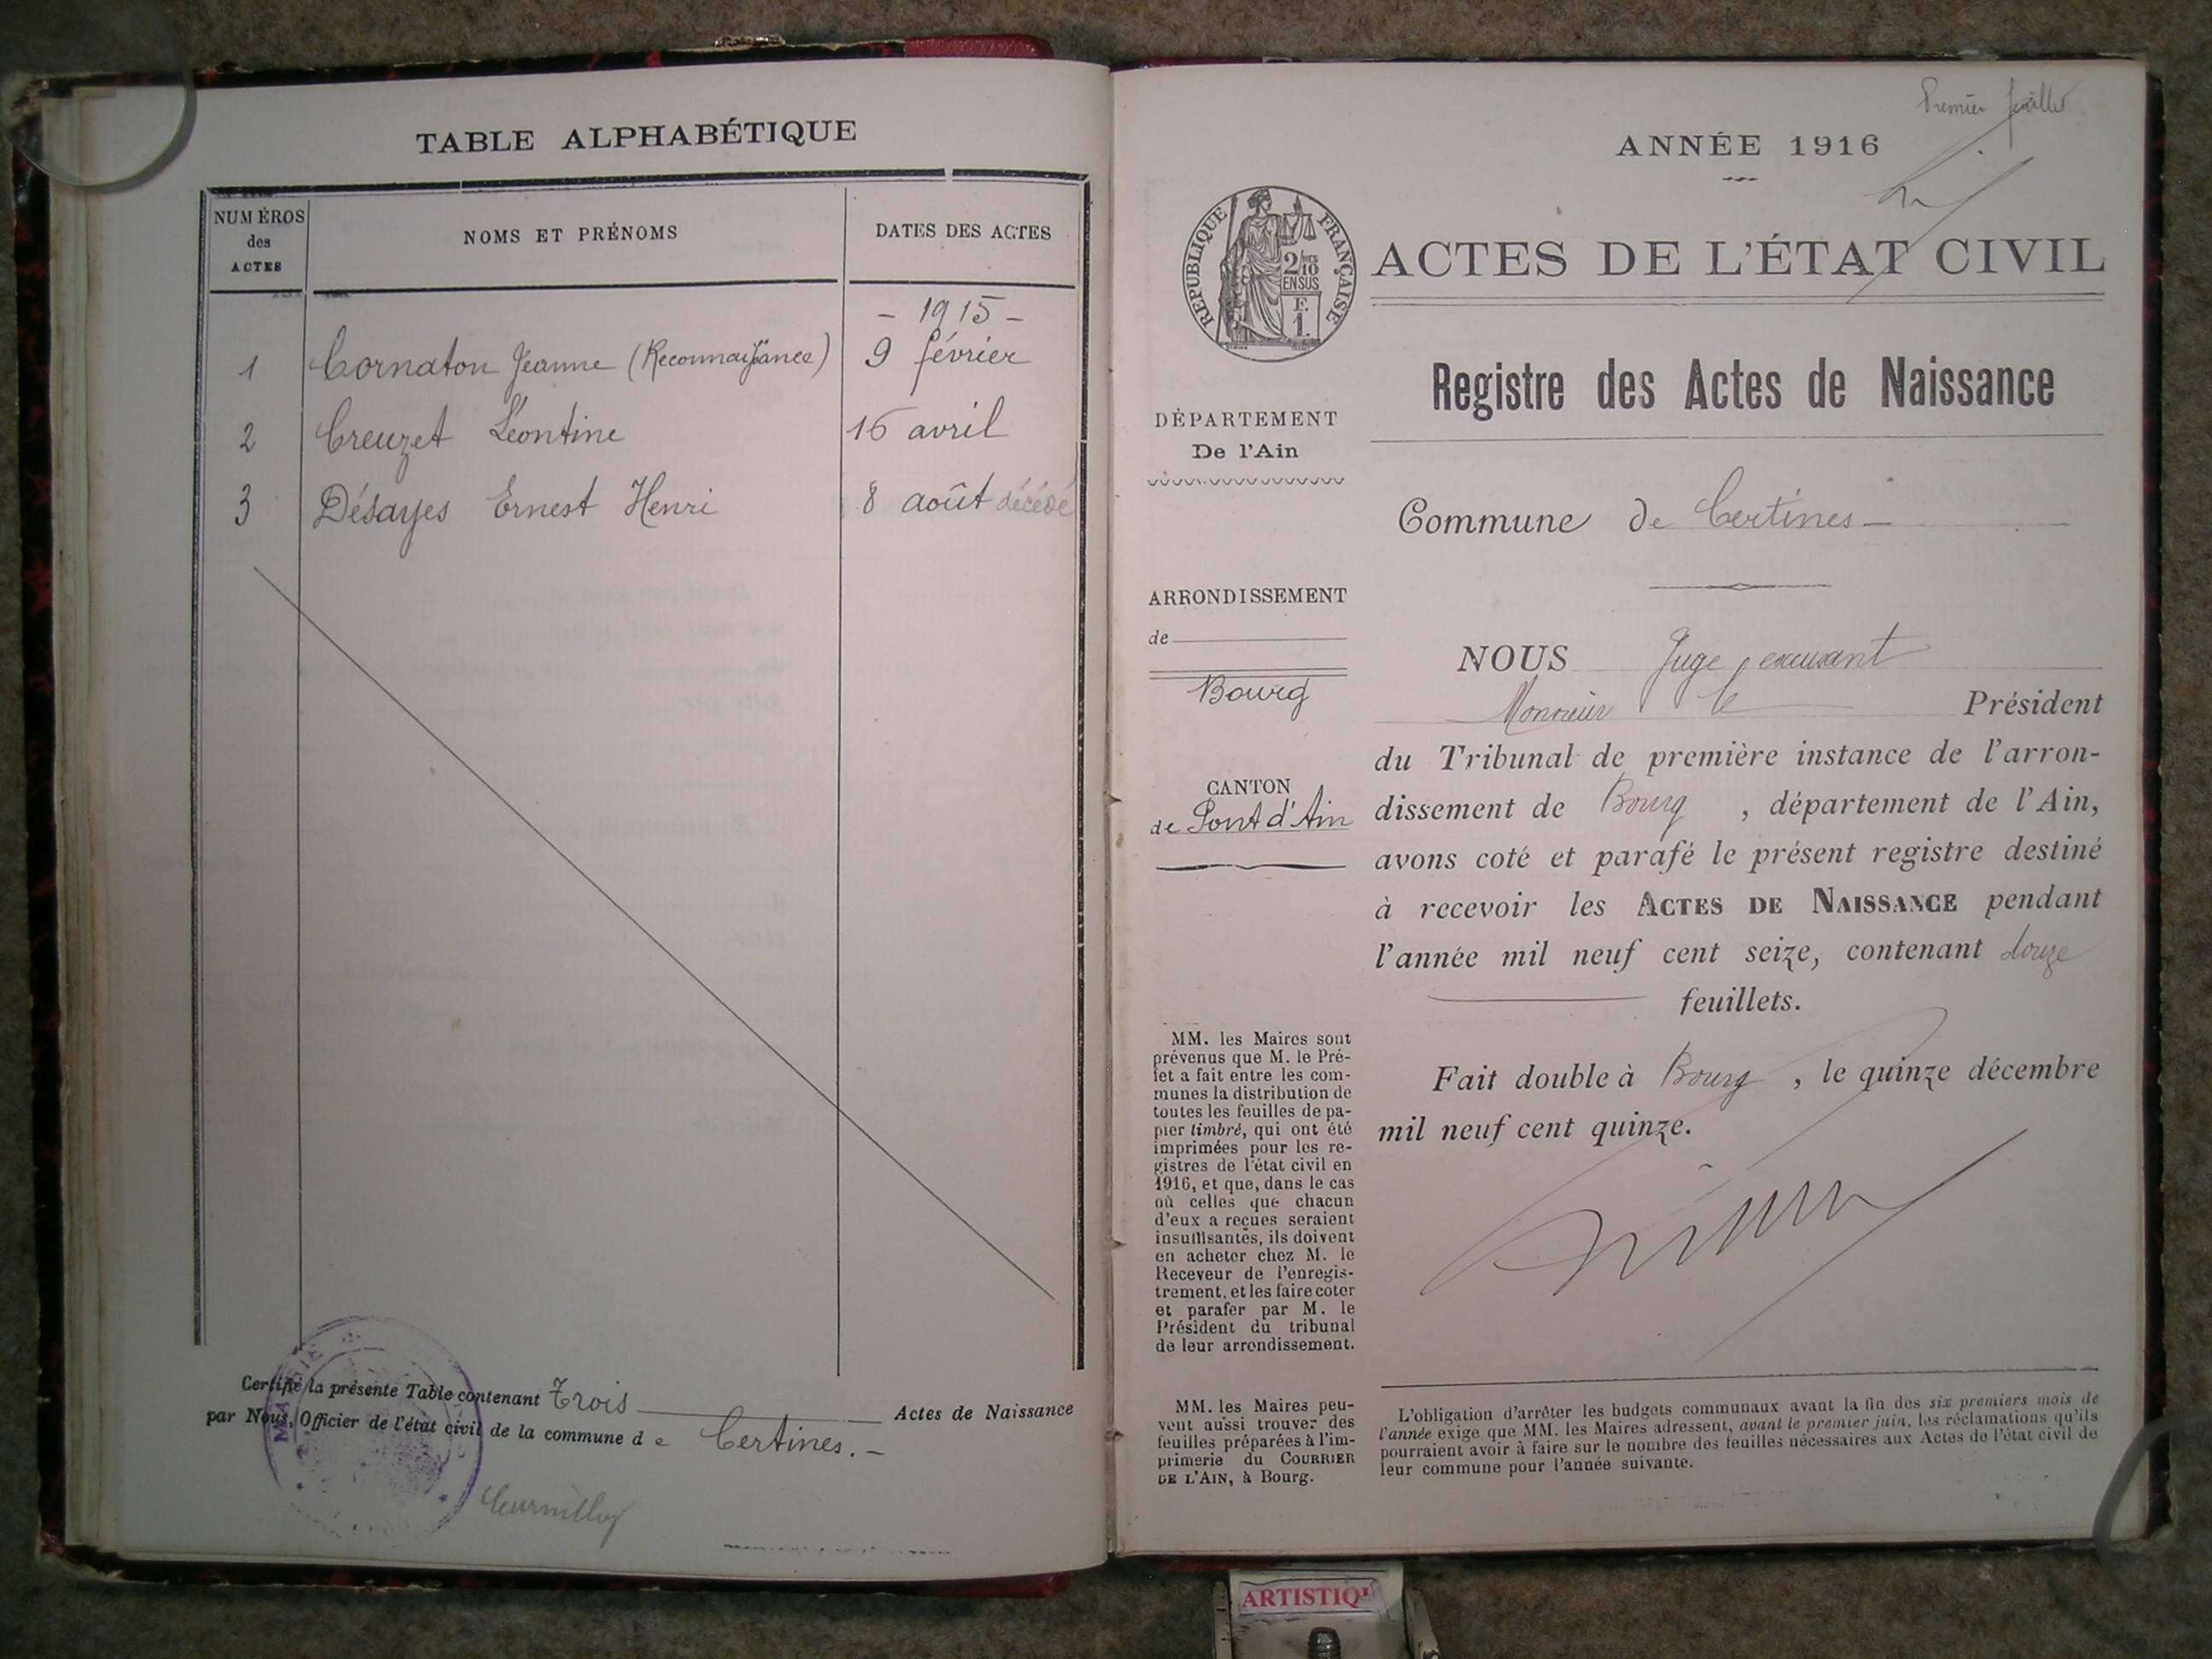 TABLE ALPHABÉTIQUE
NUMÉROS
des
ACTES
NOMS ET PRÉNOMS
DATES DES ACTES
- 1915 -
1 Cornaton Jeanne (Reconnaissance) 9 février
2 Creuzet Léontine 16 avril
3 Désayes Ernest Henri 8 août décédé
Certifié la présente Table contenant Trois Actes de Naissance
par Nous, Officier de l'état civil de la commune de Certines. -
MAIRIE
Premier feuillet
ANNÉE 1916
RÉPUBLIQUE FRANÇAISE
2/10
EN SUS
F.
1.
ACTES DE L'ÉTAT CIVIL
Registre des Actes de Naissance
DÉPARTEMENT
De l'Ain
Commune de Certines -
ARRONDISSEMENT
de
Bourg
CANTON
de Pont d'Ain
NOUS Juge excusant
Monsieur le Président
du Tribunal de première instance de l'arron-
dissement de Bourg, département de l'Ain,
avons coté et parafé le présent registre destiné
à recevoir les ACTES DE NAISSANCE pendant
l'année mil neuf cent seize, contenant douze
feuillets.
Fait double à Bourg, le quinze décembre
mil neuf cent quinze.
MM. les Maires sont
prévenus que M. le Pré-
fet a fait entre les com-
munes la distribution de
toutes les feuilles de pa-
pier timbré, qui ont été
imprimées pour les re-
gistres de l'état civil en
1916, et que, dans le cas
où celles que chacun
d'eux a reçues seraient
insuffisantes, ils doivent
en acheter chez M. le
Receveur de l'enregis-
trement, et les faire coter
et parafer par M. le
Président du tribunal
de leur arrondissement.
MM. les Maires peu-
vent aussi trouver des
feuilles préparées à l'im-
primerie du COURRIER
DE L'AIN, à Bourg.
L'obligation d'arrêter les budgets communaux avant la fin des six premiers mois de
l'année exige que MM. les Maires adressent, avant le premier juin, les réclamations qu'ils
pourraient avoir à faire sur le nombre des feuilles nécessaires aux Actes de l'état civil de
leur commune pour l'année suivante.
ARTISTIQ